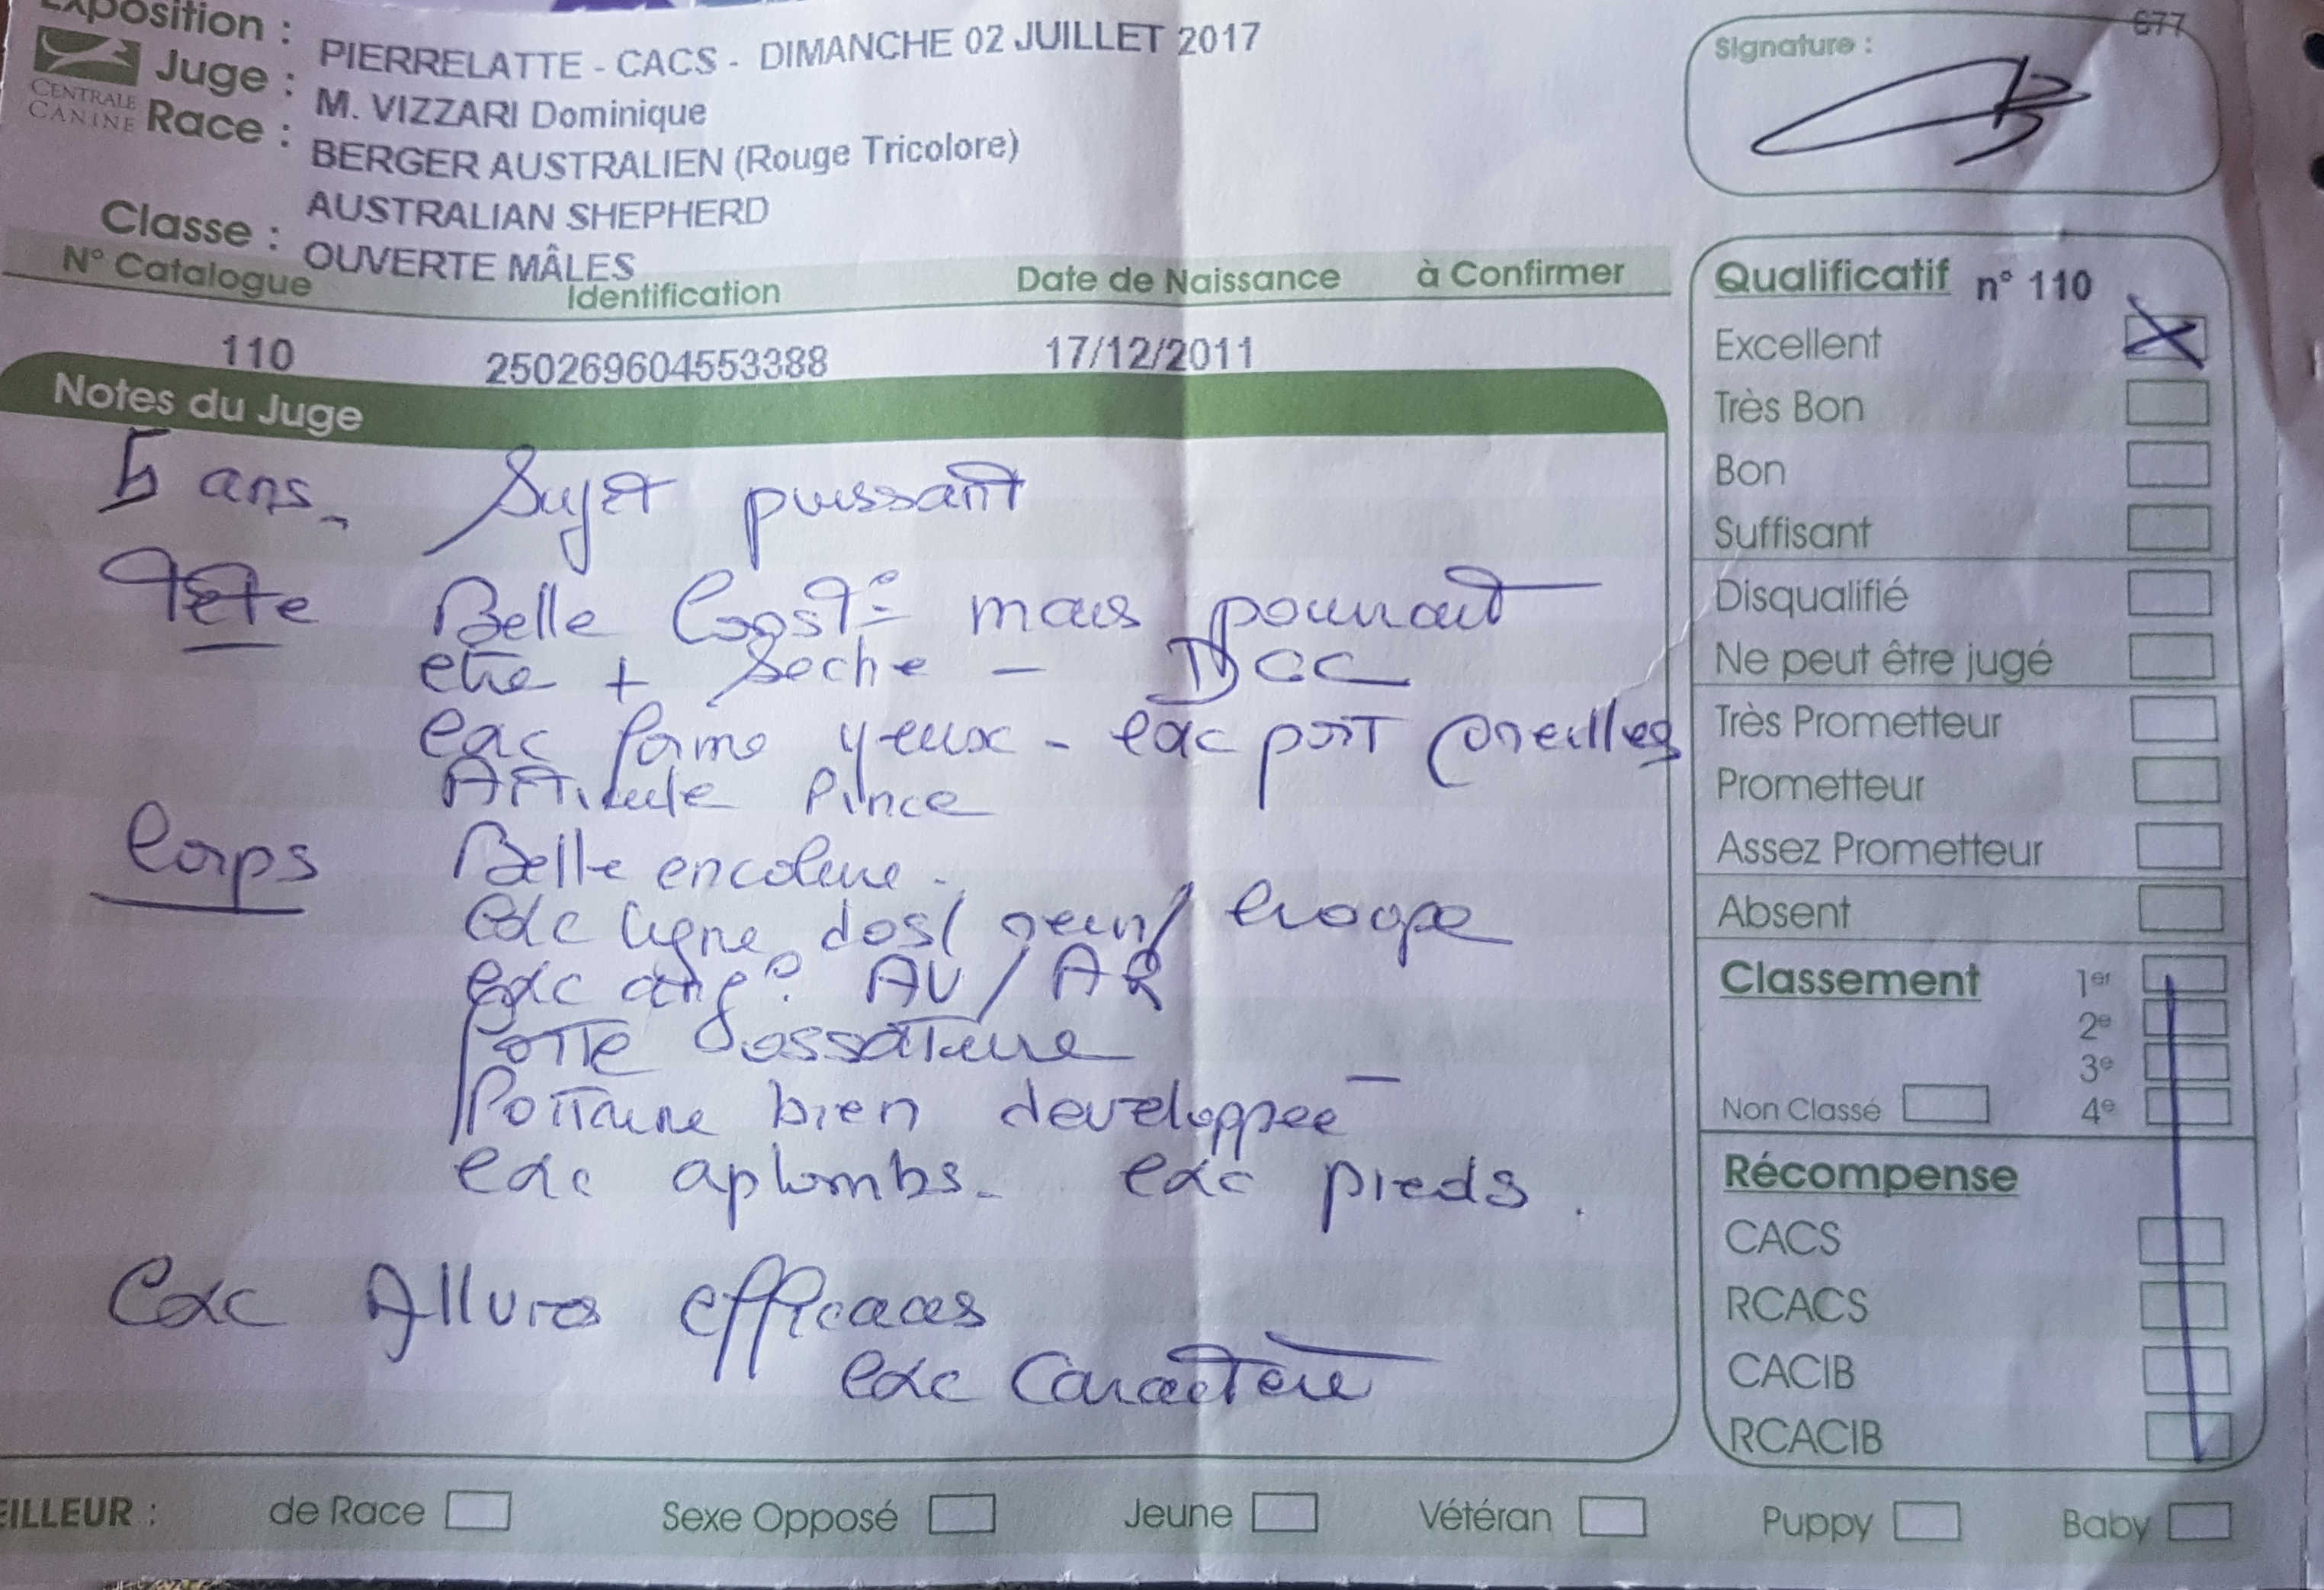 Exposition : PIERRELATTE - CACS - DIMANCHE 02 JUILLET 2017
Juge : M. VIZZARI Dominique
CENTRALE
CANINE
Race : BERGER AUSTRALIEN (Rouge Tricolore)
AUSTRALIAN SHEPHERD
Classe : OUVERTE MÂLES
N° Catalogue Identification Date de Naissance à Confirmer
110 250269604553388 17/12/2011
Notes du Juge
5 ans. Sujet puissant
Tête Belle mais pourrait
etre + seche - DCC
exc forme yeux - exc port oreilles
Articule Pince
Corps Belle encolure.
exc ligne dos/ rein/ croupe
exc ang° AV / AR
Forte ossature
Poitrine bien developpee
exc aplombs. exc pieds.
Exc Allures efficaces
exc Caractère
677
Signature :
Qualificatif n° 110
Excellent
Très Bon
Bon
Suffisant
Disqualifié
Ne peut être jugé
Très Prometteur
Prometteur
Assez Prometteur
Absent
Classement 1er
2e
3e
Non Classé 4e
Récompense
CACS
RCACS
CACIB
RCACIB
EILLEUR : de Race Sexe Opposé Jeune Vétéran Puppy Baby